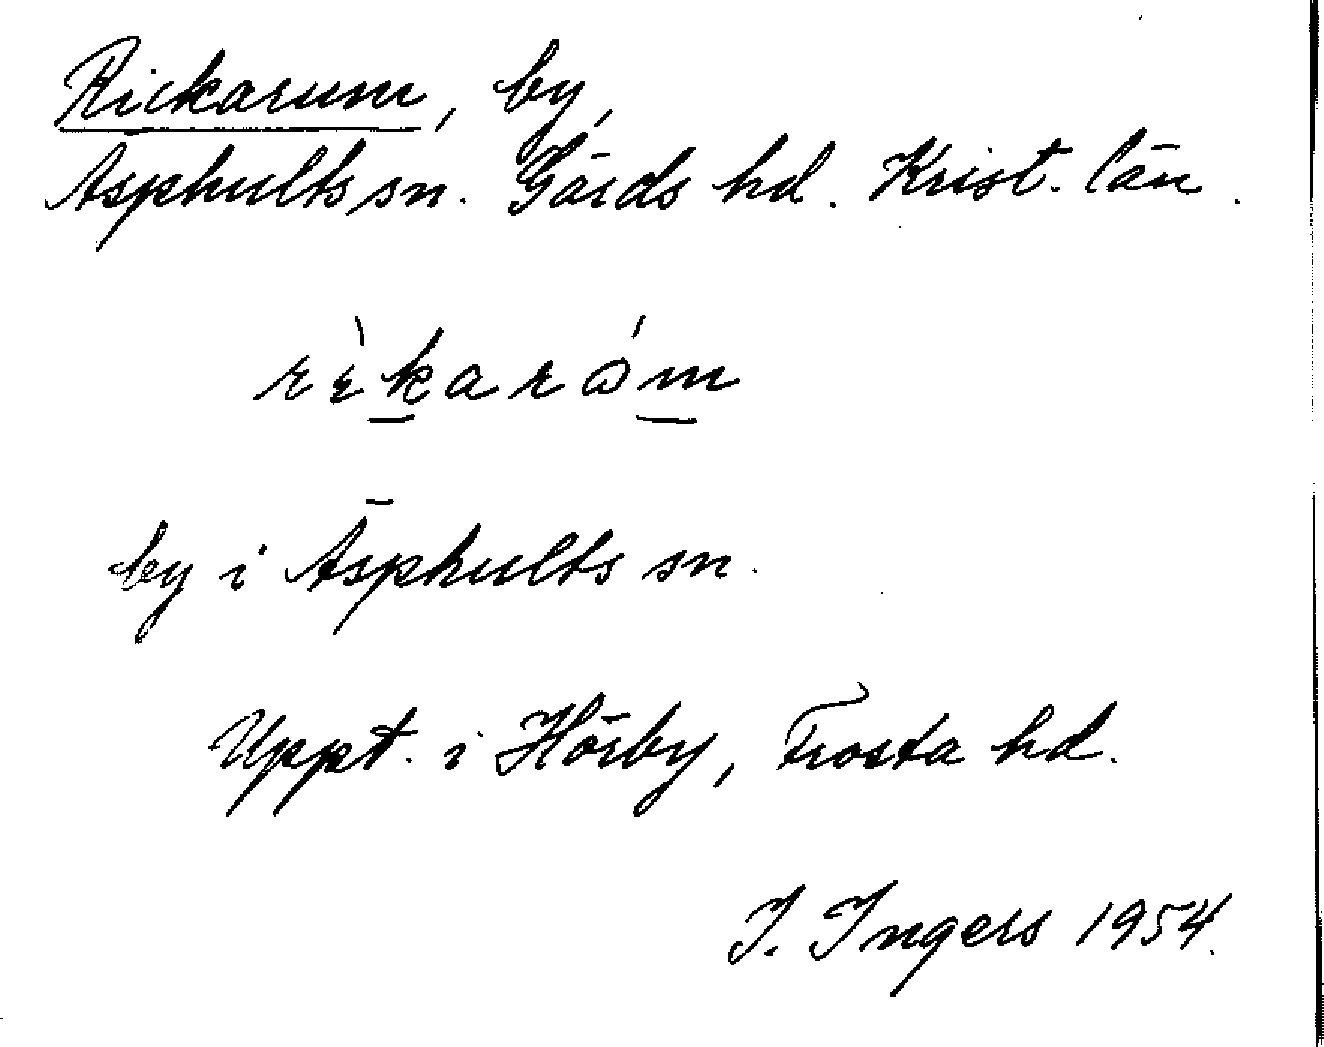 Rickarum, by,
Äsphults sn. Gärds hd. Krist. län.
rèkaróm
by i Äsphults sn.
Uppt. i Hörby, Frosta hd.
I. Ingers 1954.